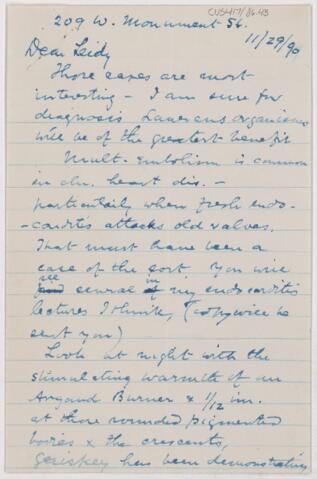 CUS417/86.43
209 W. Monument St.
11/29/90
Dear Leidy
Those cases are most
interesting - I am sure for
diagnosis Laverans organisms
will be of the greatest benefit
Mult. embolism is common
in chr. heart dis. -
particularly when fresh endo-
-carditis attacks old valves.
That must have been a
case of the sort. You will
see several in my endocarditis
lectures I think, (copy will be
sent you)
Look at night with the
stimulating warmth of an
Argand Burner & 1/12 im.
at those rounded pigmented
bodies & the crescents,
has been demonstrating